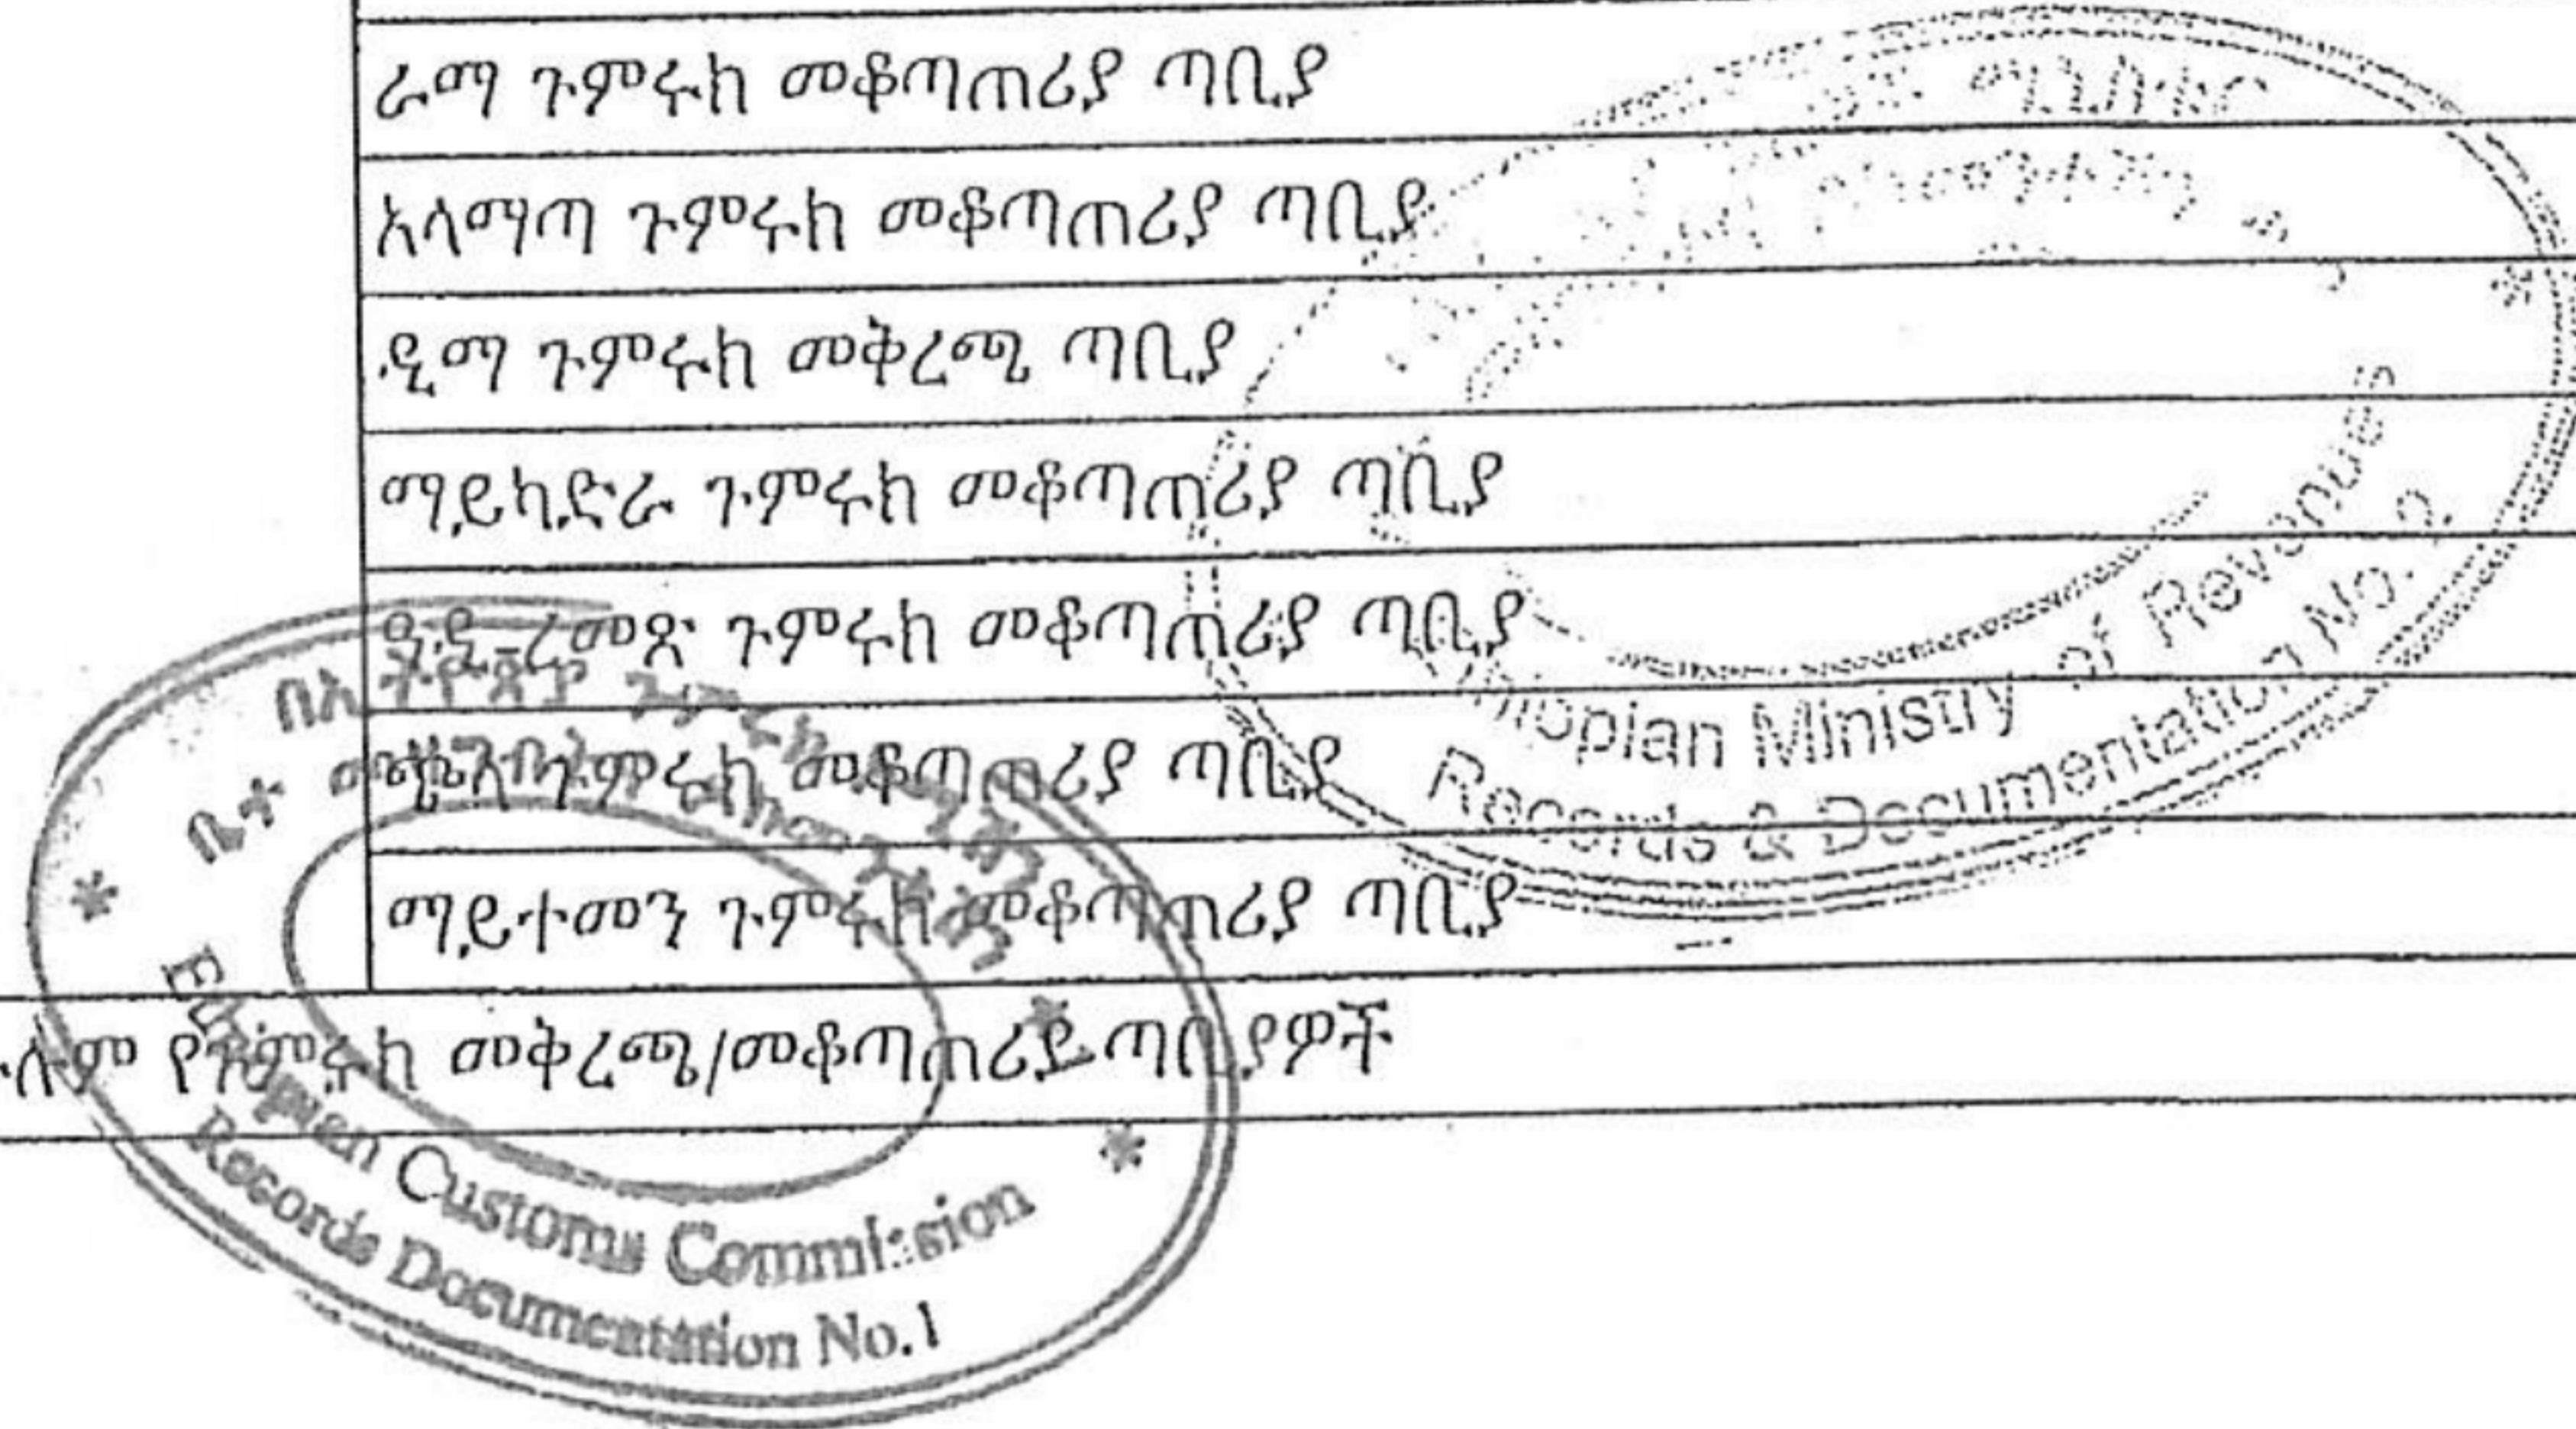 ራማ ጉምሩክ መቆጣጠሪያ ጣቢያ
አላማጣ ጉምሩክ መቆጣጠሪያ ጣቢያ
ዲማ ጉምሩክ መቅረጫ ጣቢያ
ማይካድራ ጉምሩክ መቆጣጠሪያ ጣቢያ
ጉምሩክ መቆጣጠሪያ ጣቢያ
ጉምሩክ መቆጣጠሪያ ጣቢያ
ማይተመን ጉምሩክ መቆጣጠሪያ ጣቢያ
የጉምሩክ መቅረጫ/መቆጣጠሪያ ጣቢያዎች
ሚኒስቴር
Ethiopian Ministry of Revenues
Records & Documentation No. 2
Ethiopian Customs Commission
Records Documentation No.1